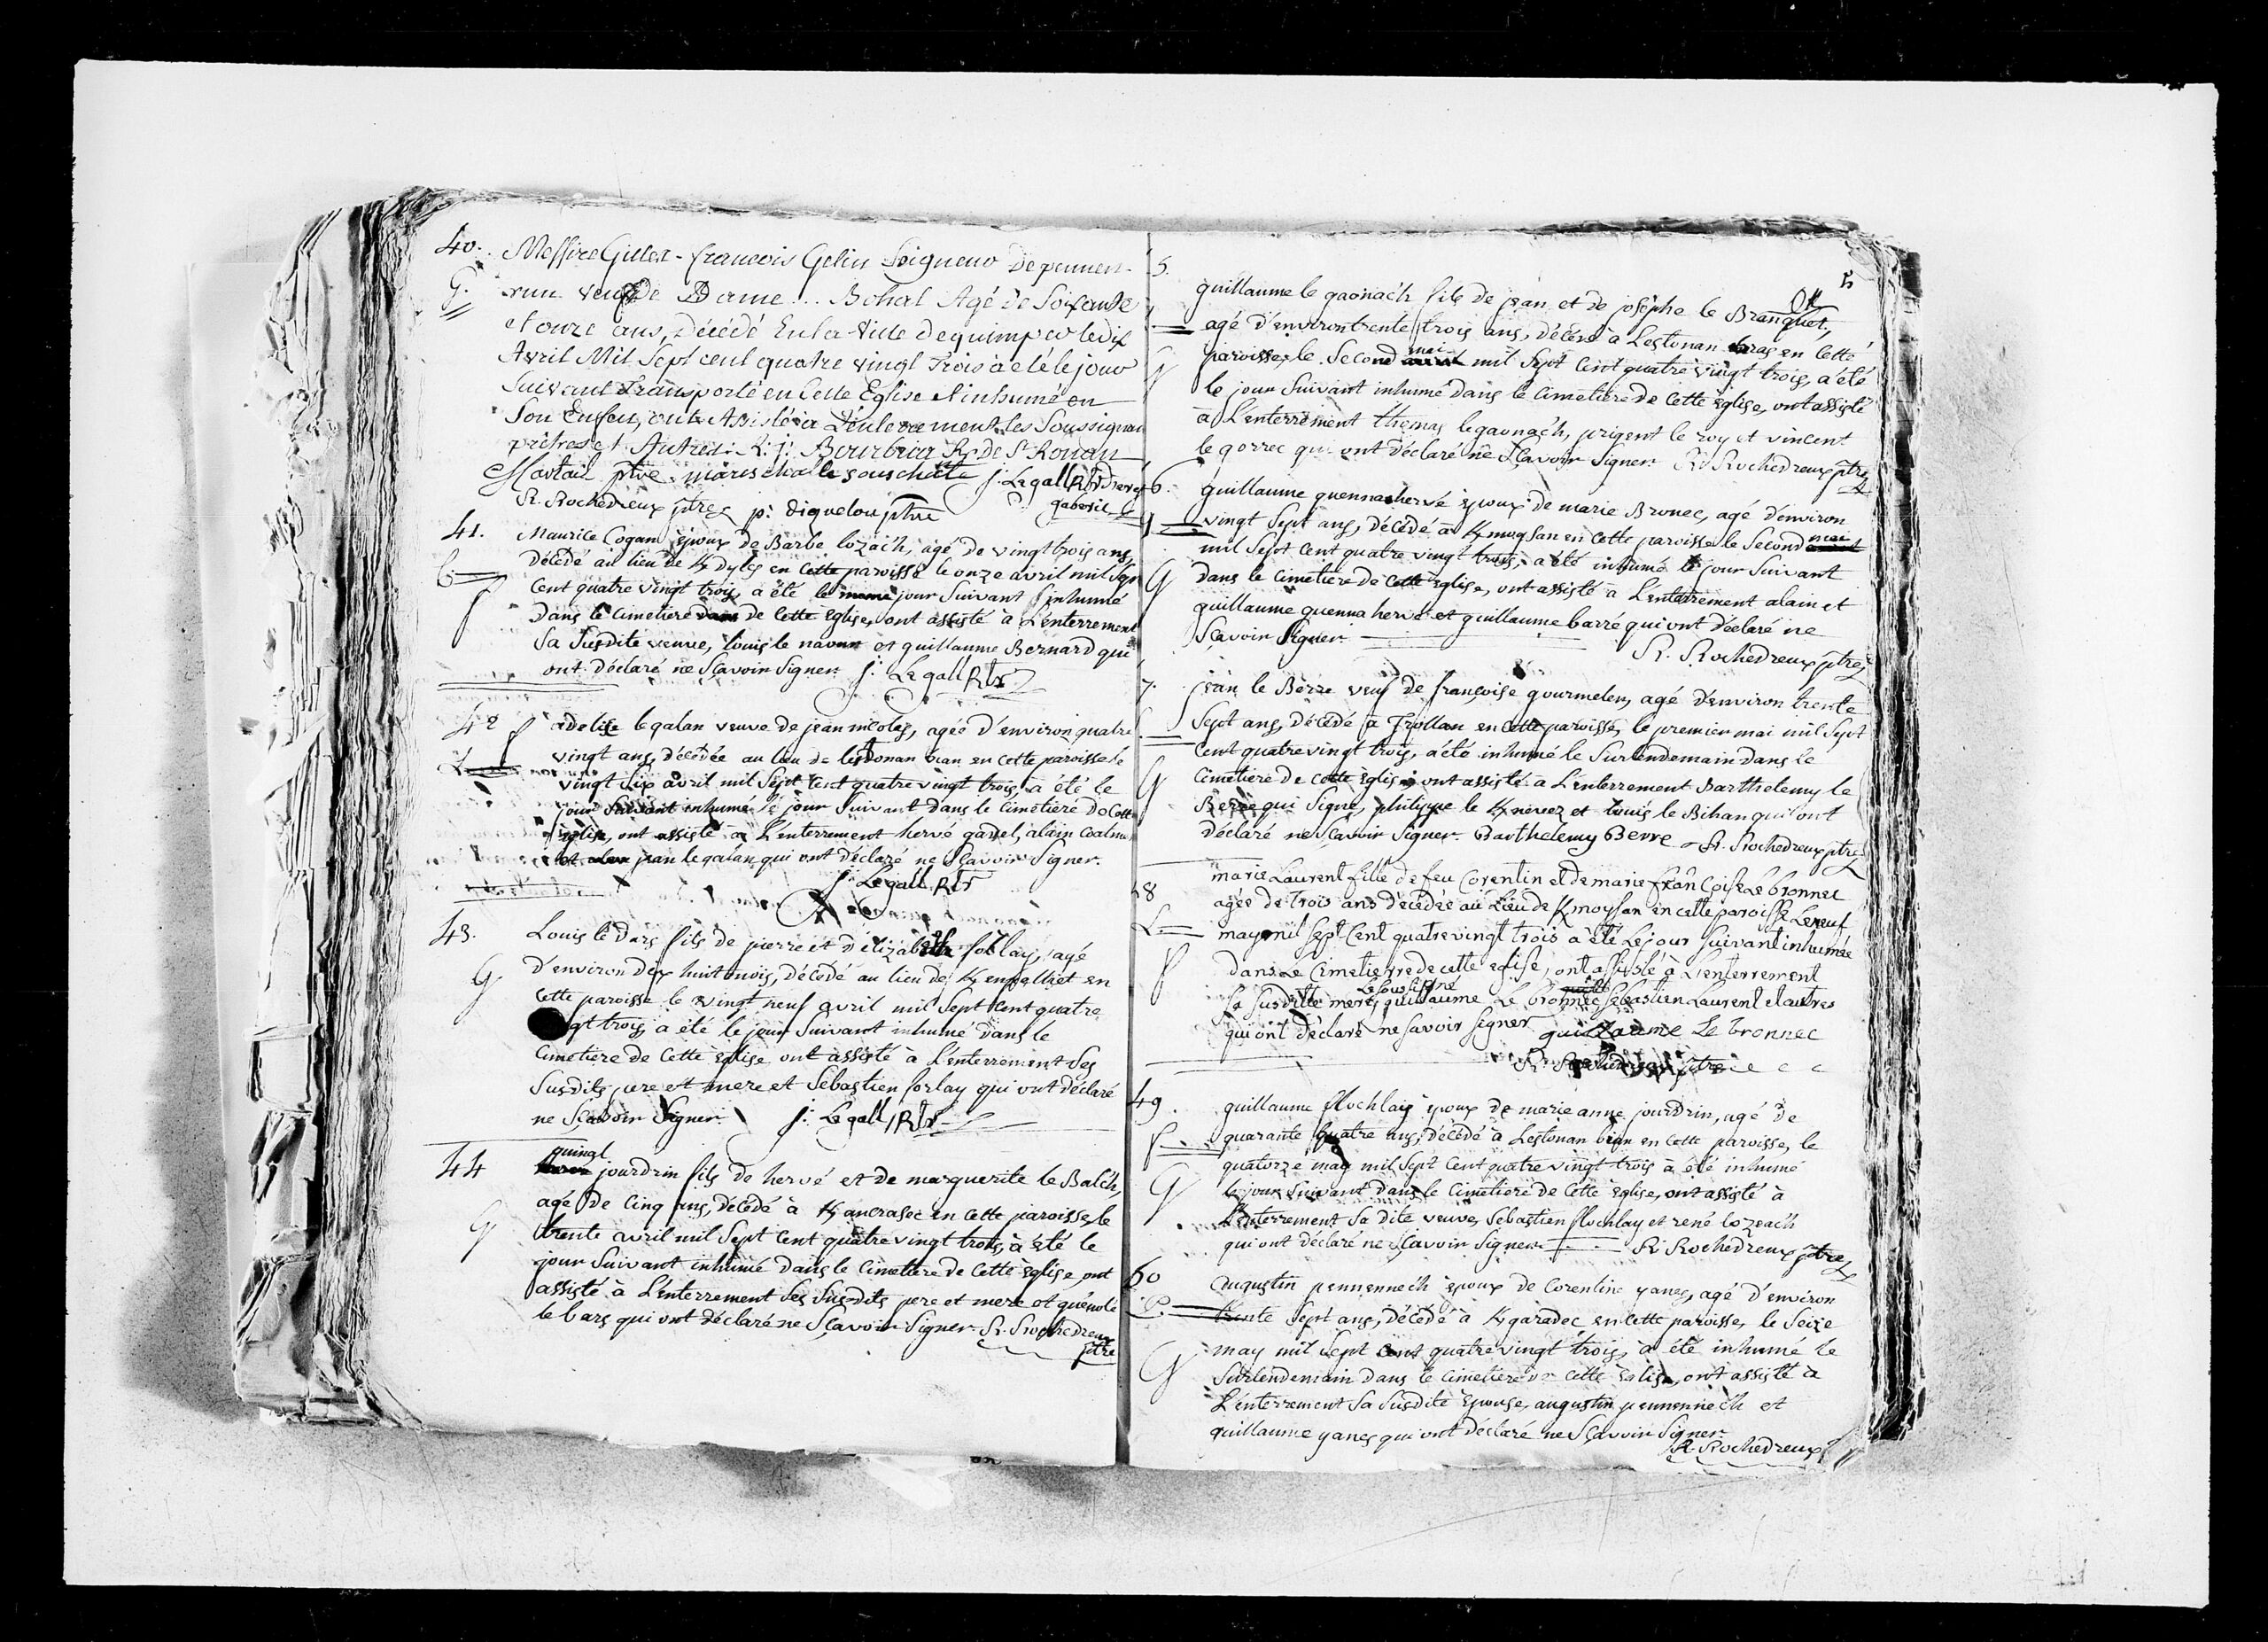 40. Messire Gilles-francois Gelin Seigneur de pennen-
G. run veuf de Dame ... Bohal Agé de Soixante
et onze ans, Décédé En la Ville de quimper le dix
Avril Mil Sept cent quatre vingt Trois à eté le jour
Suivant Transporté en Cette Eglise et inhumé en
Son Enfeu, ont Assisté à L'enterrement les Soussignan
prêtres et Autres: R: de St Ronan
ptre. j: Le gall Rtr
R. Rochedreux ptre p: diquelou ptre gaberic
41. Maurice Cogan époux de Barbe lozaich, agé de vingt trois ans,
C. Décédé au lieu de Kdyles en cette paroisse le onze avril mil Sept
Cent quatre vingt trois, a été le jour Suivant inhumé
Dans le cimetiere de cette église, ont assisté à L'enterrement
Sa Susdite veuve, louis le naour et guillaume Bernard qui
ont déclaré ne Sçavoir Signer. j: Le gall Rtr
42 adelise le galan veuve de jean nicolas, agée d'environ quatre
vingt ans, décédée au lieu de lestonan vian en cette paroisse le
vingt six avril mil Sept Cent quatre vingt trois, a été le
jour Suivant inhumé le jour Suivant dans le Cimetiere de Cette
église, ont assisté à L'enterrement hervé gadel, alain Coalm
et jean le galan, qui ont déclaré ne Sçavoir Signer.
j: Legall Rtr
43. Louis le Dars fils de pierre et d'élizabeth follay, agé
G d'environ dix huit mois, décédé au lieu de en
Cette paroisse le vingt neuf avril mil Sept Cent quatre
gt trois, a été le jour Suivant inhumé dans le
Cimetiere de Cette église ont assisté à L'enterrement Ses
Susdits pere et mere et Sebastien forlay qui ont déclaré
ne Scavoir Signer. j: Le gall, Rtr
quingl
44 jourdrin fils de hervé et de marguerite le Balch,
agé De Cinq ans, décédé à K ancrasec en cette paroisse, le
G trente avril mil Sept Cent quatre vingt trois, a été le
jour Suivant inhumé dans le Cimetiere de Cette église, ont
assisté à L'enterrement Ses Susdits pere et mere et guénolé
le bars qui ont déclaré ne Sçavoir Signer. R. Rochedreux
ptre
5.
guillaume le gaonach fils de jean et de josèphe le Branquet,
agé d'environ trente trois ans, décédé à Lestonan bras en cette
mai
G paroisse, le Second avril mil Sept Cent quatre vingt trois, a été
le jour Suivant inhumé dans le Cimetiere de Cette église, ont assisté
à L'enterrement thomas le gaonach, prigent le roy et vincent
le gorrec qui ont déclaré ne Sçavoir Signer R. Rochedreux ptre
6. guillaume quennaherve époux de marie Bronec, agé d'environ
mai
vingt Sept ans, décédé à K moysan en Cette paroisse le Second avril
mil Sept cent quatre vingt trois, a été inhumé le jour Suivant
G dans le Cimetiere de Cette église, ont assisté à L'enterrement alain et
guillaume quennaherve et guillaume barré qui ont déclaré ne
Sçavoir Signer
R. Rochedreux ptre
7. jean le Berre veuf de françoise gourmelen, agé d'environ trente
Sept ans, décédé à Trollan en Cette paroisse, le premier mai mil Sept
Cent quatre vingt trois, a été inhumé le Surlendemain dans le
G Cimetiere de cette église, ont assisté à L'enterrement Barthelemy le
Berre qui Signe, philippe le K nevez et louis le Bihan qui ont
déclaré ne Sçavoir Signer. Barthelemy Berre R. Rochedreux ptre
48 marie Laurent fille de feu Corentin et de marie françoise Le bronnec
agée de Trois ans décédée au Lieu de K moysan en cette paroisse Le neuf
L may mil Sept Cent quatre vingt trois a été Le jour Suivant inhumée
dans Le Cimetierre de cette eglise, ont assisté à L'enterrement
Le soussigné
Sa susditte mere, guillaume Le bronnec Sebastien Laurent et autres
qui ont déclaré ne savoir signer guillaume Le bronnec
R. Rochedreux ptre
49. guillaume flochlay époux de marie anne jourdrin, agé de
quarante quatre ans, décédé à Lestonan bian en cette paroisse, le
quatorze may mil Sept Cent quatre vingt trois à été inhumé
G le jour Suivant dans le Cimetiere de Cette église, ont assisté à
L'enterrement Sa dite veuve, Sebastien flochlay et rené lozeach
qui ont déclaré ne Sçavoir Signer. R. Rochedreux ptre
50 augustin pennennech époux de Corentine yanes, agé d'environ
P. trente Sept ans, décédé à K garadec en Cette paroisse, le Seize
may mil Sept Cent quatre vingt trois, a été inhumé le
G Surlendemain dans le Cimetiere de Cette église, ont assisté à
L'enterrement Sa Susdite épouse, augustin pennennech et
guillaume yanes qui ont déclaré ne Sçavoir Signer
R. Rochedreux